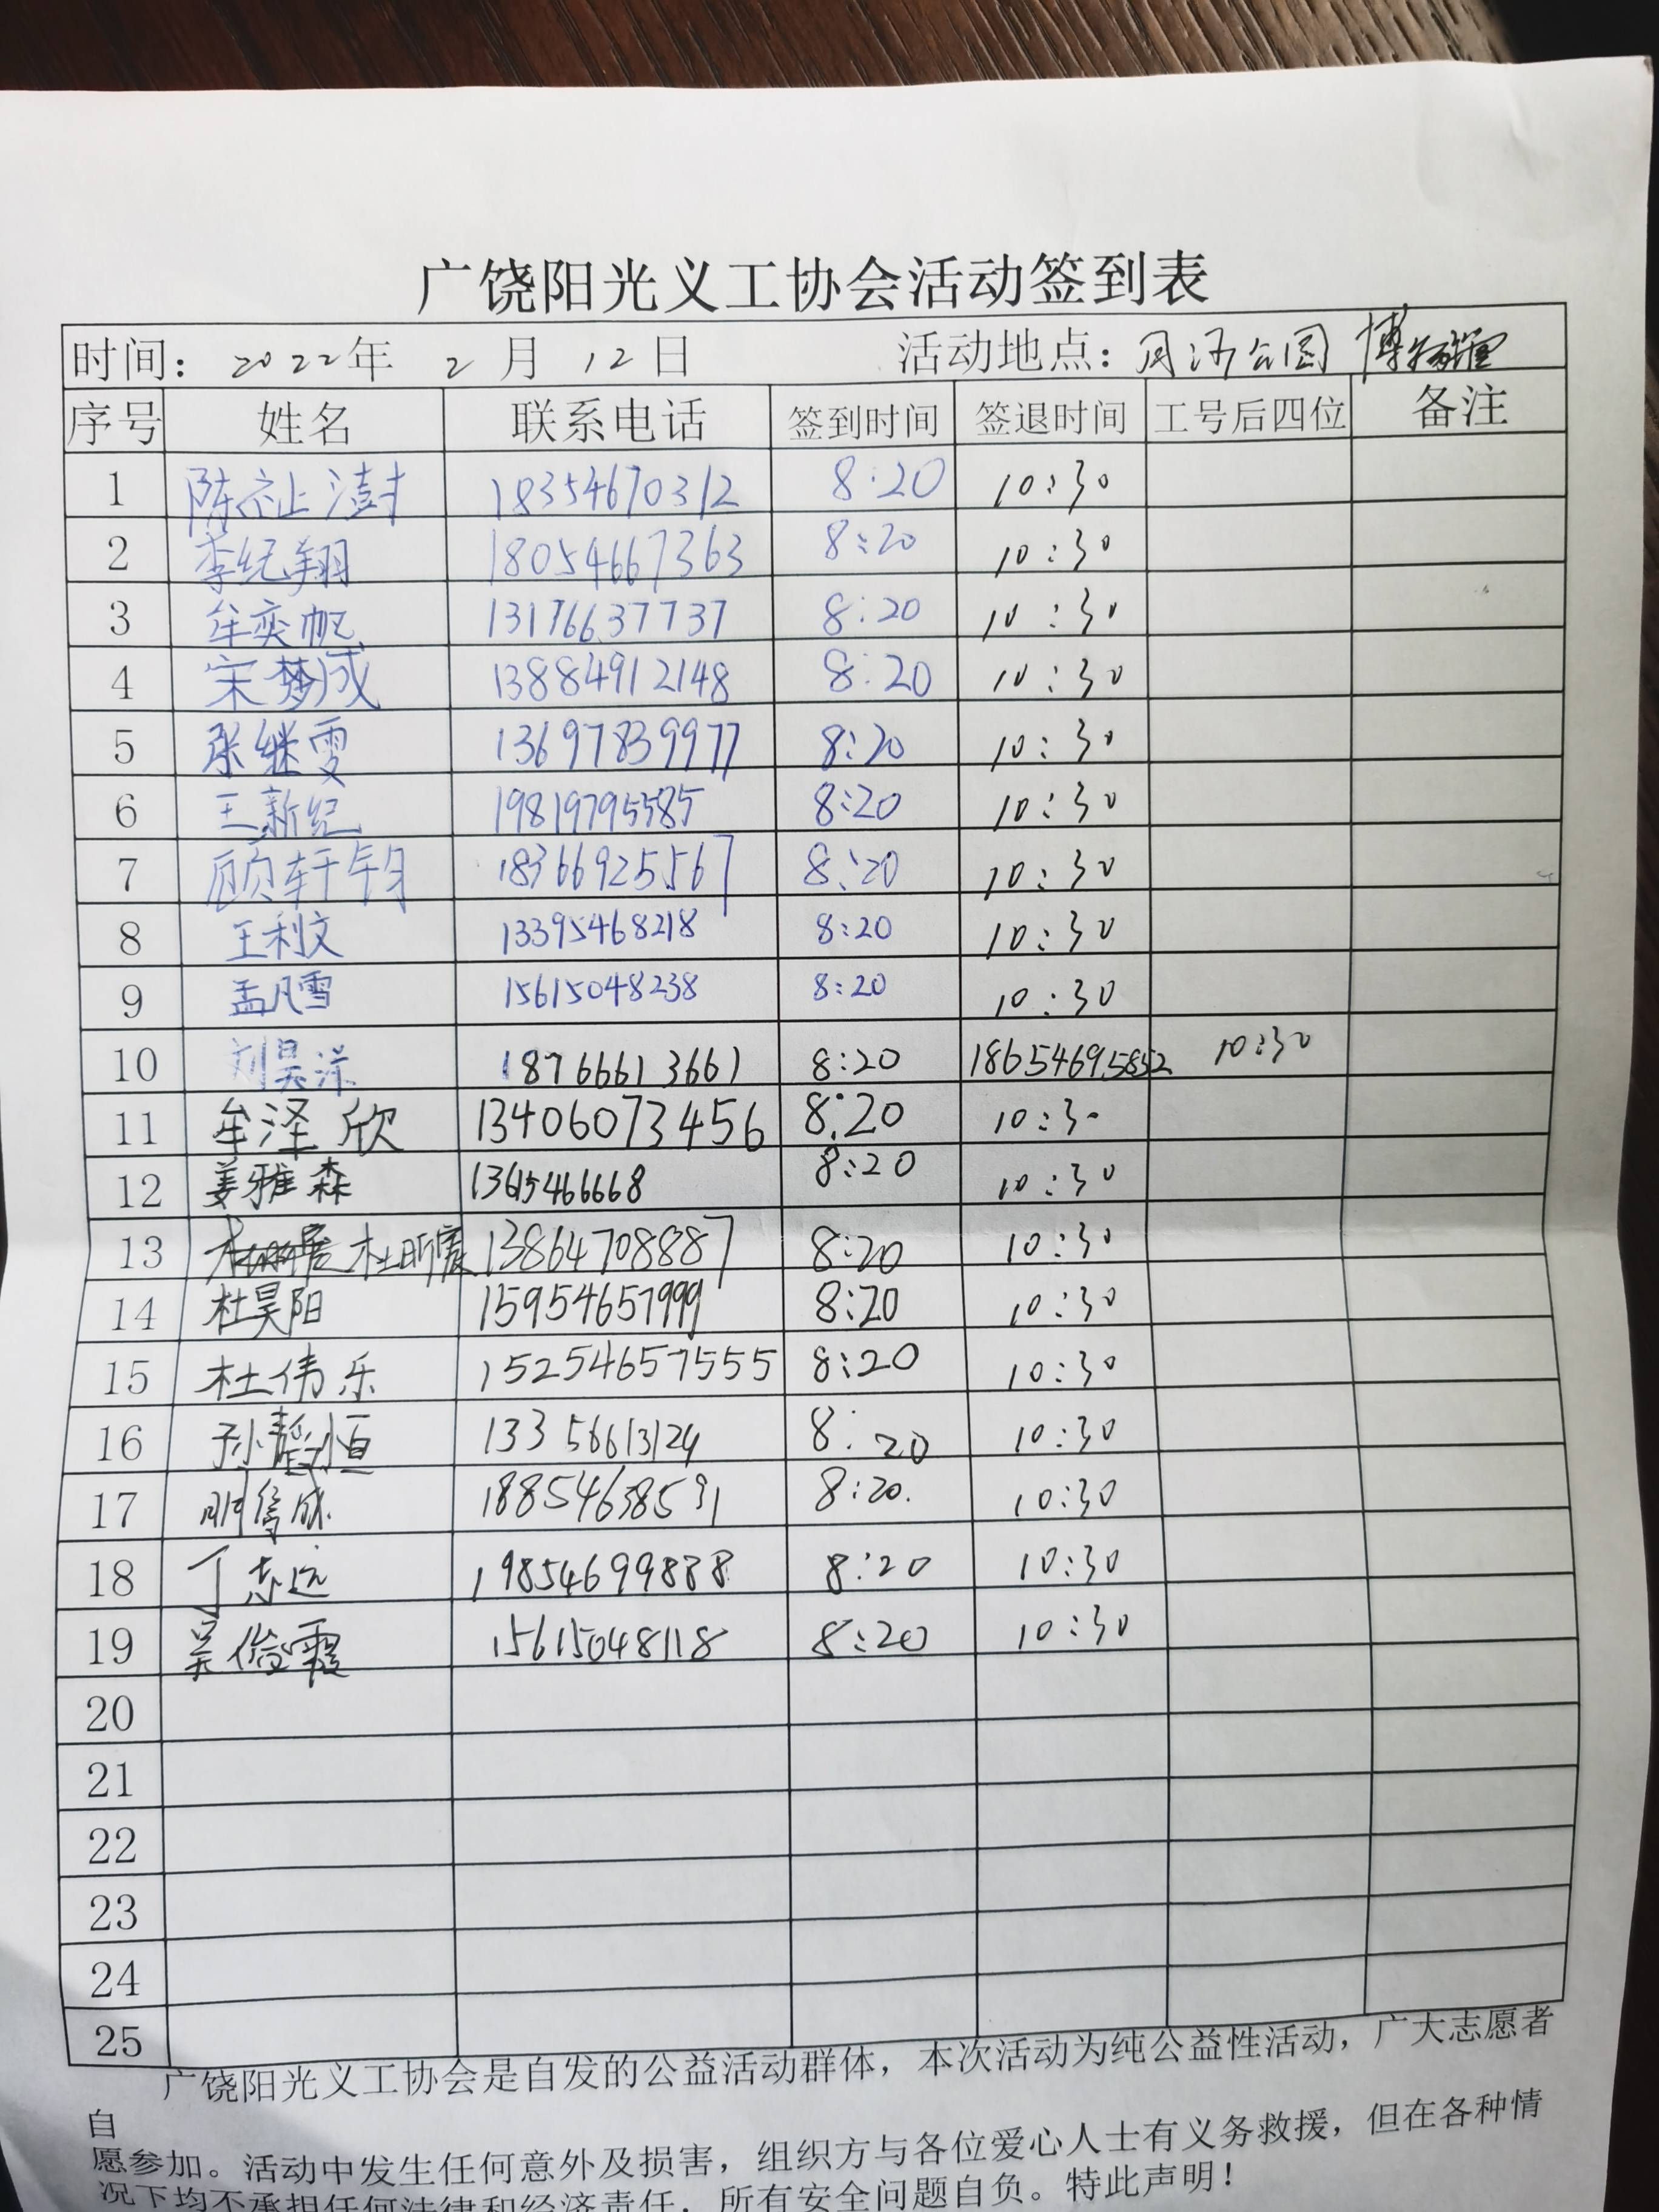 广饶阳光义工协会活动签到表
时间：2022年 2 月 12日 活动地点：月河公园 博物馆
序号 姓名 联系电话 签到时间 签退时间 工号后四位 备注
1 陈祉澍 18354670312 8:20 10:30
2 李纪翔 18054667363 8:20 10:30
3 牟奕帆 13176637737 8:20 10:30
4 宋梦成 13884912148 8:20 10:30
5 张继雯 13697839977 8:20 10:30
6 王新纪 19819795585 8:20 10:30
7 顾轩钧 18366925567 8:20 10:30
8 王利文 13395468218 8:20 10:30
9 孟凡雪 15615048238 8:20 10:30
10 刘昊洋 18766613661 8:20 18654695852 10:30
11 牟泽欣 13406073456 8:20 10:30
12 姜雅森 13615466668 8:20 10:30
13 杜昕霞 13864708887 8:20 10:30
14 杜昊阳 15954657999 8:20 10:30
15 杜伟乐 15254657555 8:20 10:30
16 孙静恒 13356613124 8:20 10:30
17 18854638591 8:20 10:30
18 丁志远 19854699888 8:20 10:30
19 吴俊霞 15615048118 8:20 10:30
20
21
22
23
24
25
广饶阳光义工协会是自发的公益活动群体，本次活动为纯公益性活动，广大志愿者
自
愿参加。活动中发生任何意外及损害，组织方与各位爱心人士有义务救援，但在各种情
况下均不承担任何法律和经济责任，所有安全问题自负。特此声明！